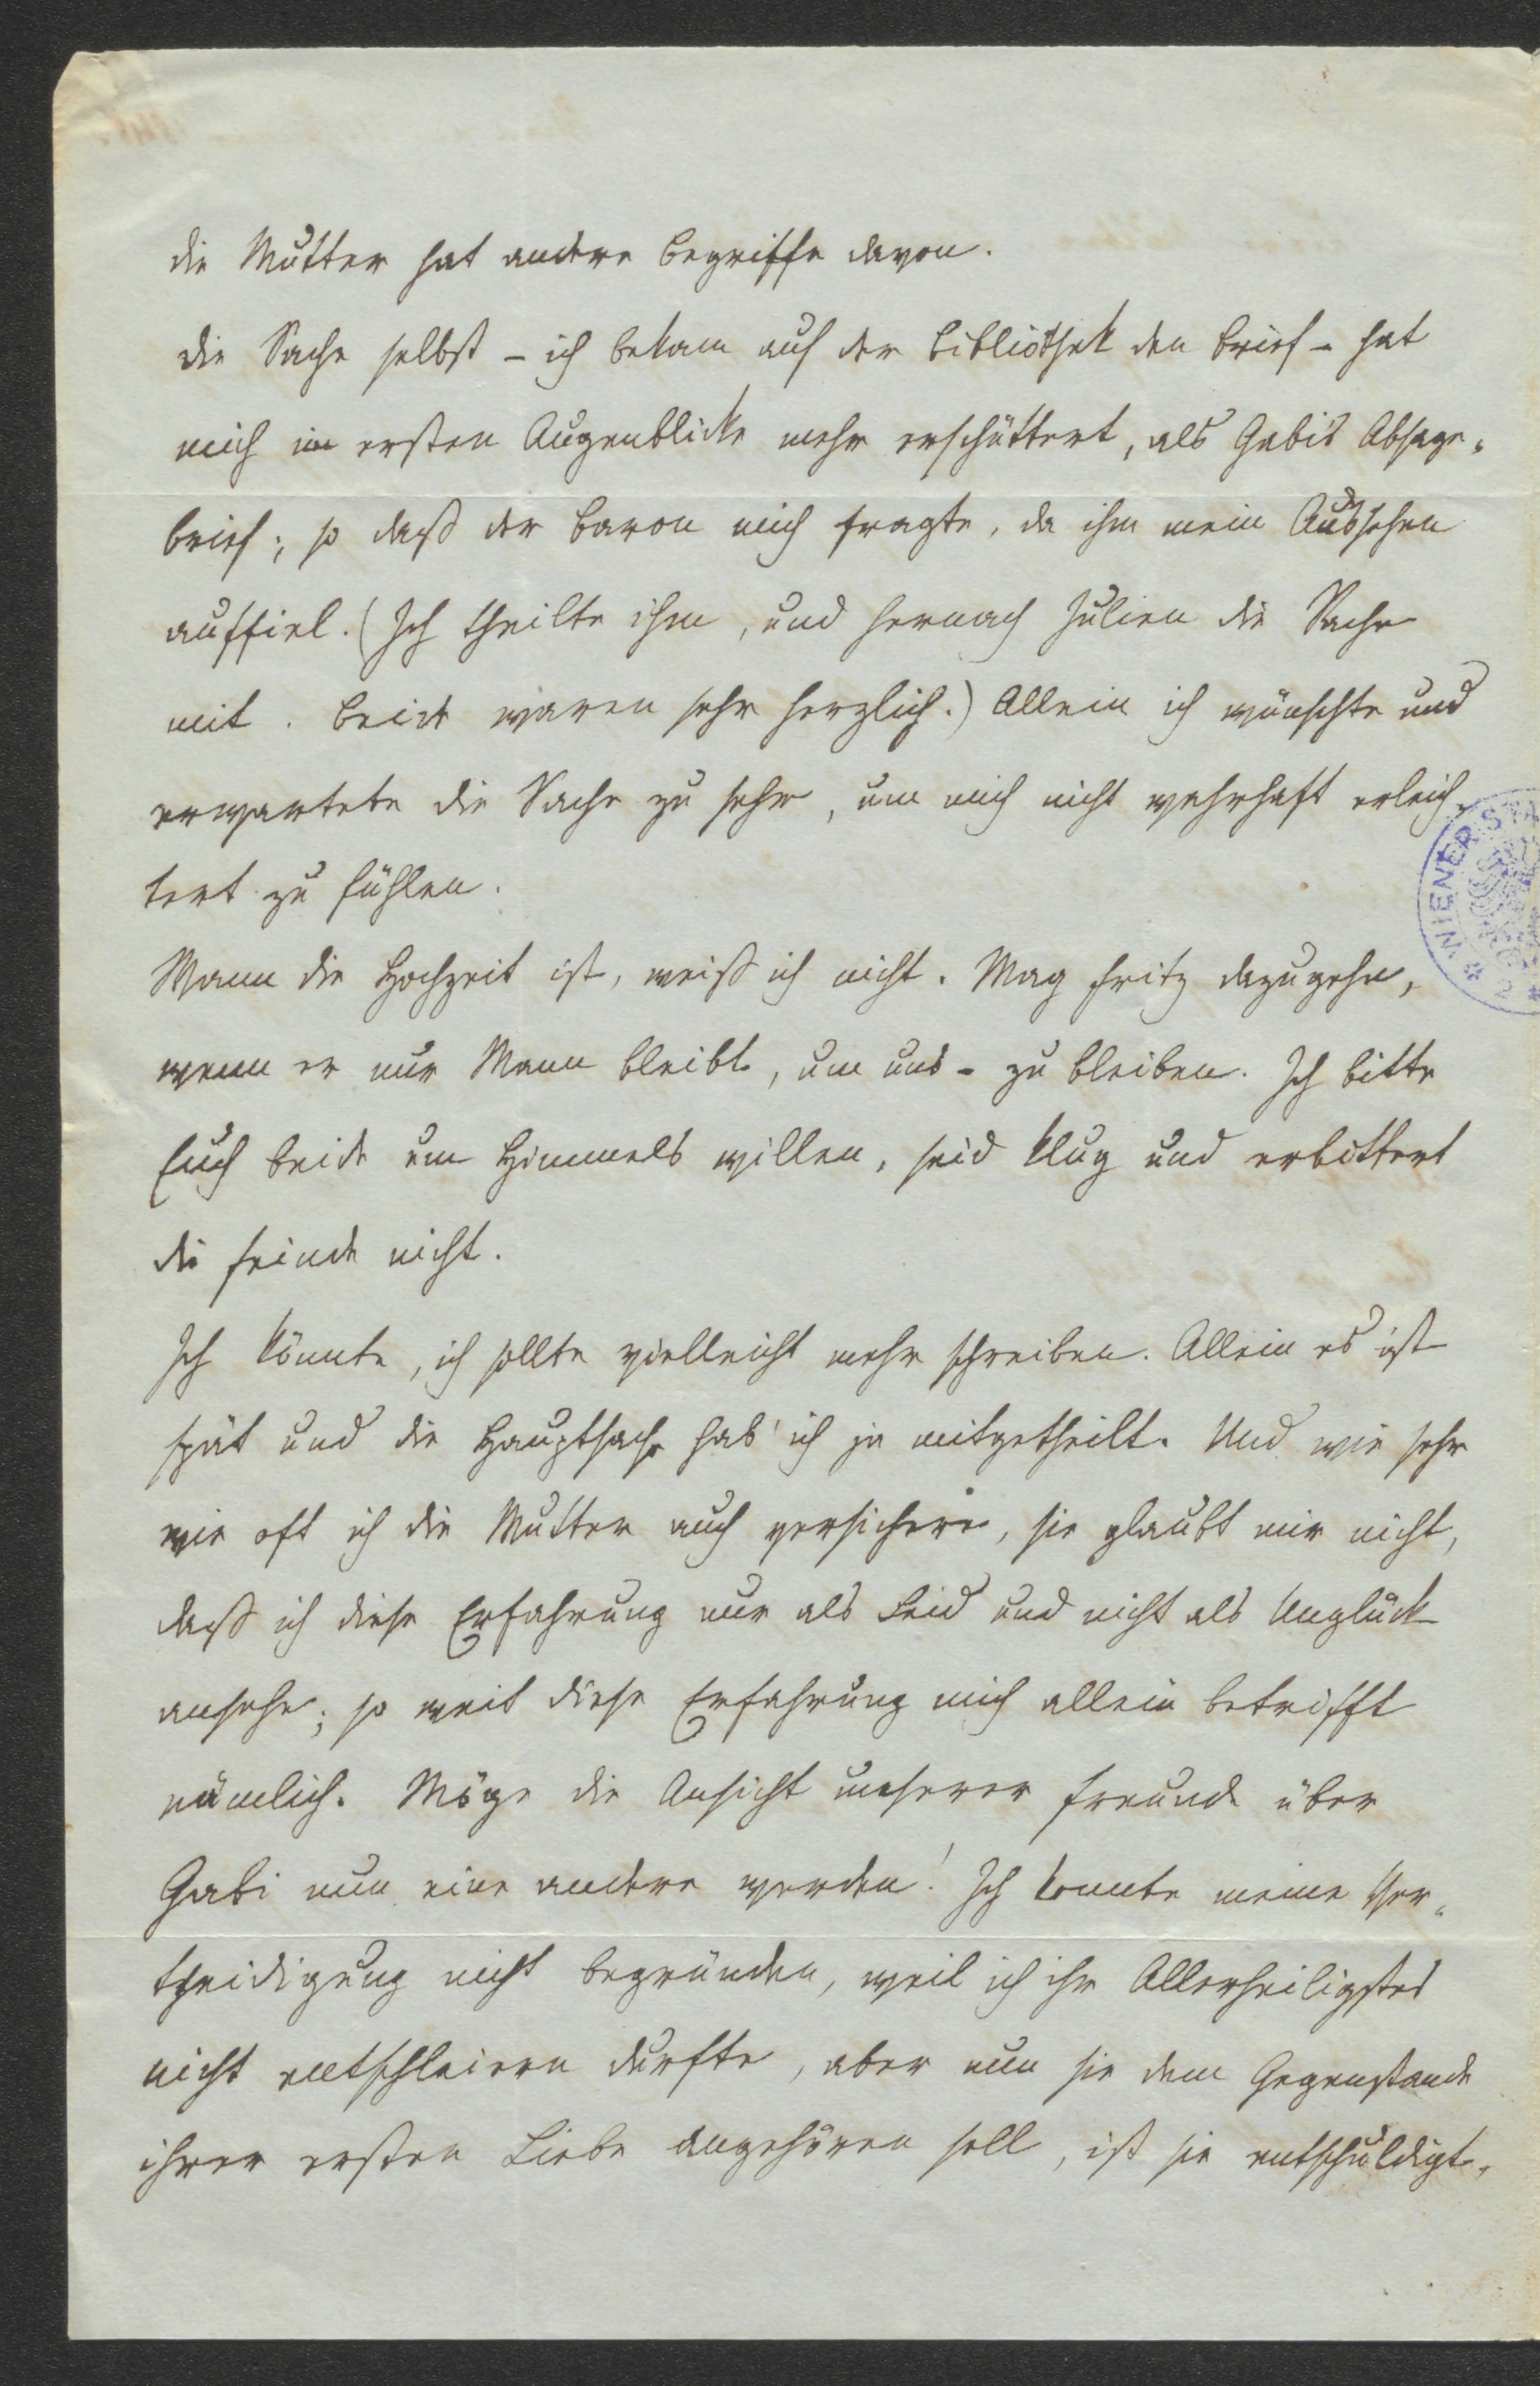 die Mutter hat andere Begriffe davon.
Die Sache selbst – ich bekam auf der Bibliothek den Brief – hat
mich im ersten Augenblicke mehr erschüttert, als Gabis Absage-
brief; so daß der Baron mich fragte, da ihm mein Aussehen
auffiel. (Ich theilte ihm, und hernach Julien die Sache
mit. Beide waren sehr herzlich.) Allein ich wünschte und
erwartete die Sache zu sehr, um mich nicht wahrhaft erleich-
tert zu fühlen.
Wann die Hochzeit ist, weiß ich nicht. Mag Fritz dazugehn,
wenn er nur Mann bleibt, um uns – zu bleiben. Ich bitte
Euch beide um Himmels willen, seid klug und erbittert
die Feinde nicht.
Ich könnte, ich sollte vielleicht mehr schreiben. Allein es ist
spät und die Hauptsache hab' ich ja mitgetheilt. Und wie sehr
wie oft ich die Mutter auch versichere, sie glaubt mir nicht,
daß ich diese Erfahrung nur als Leid und nicht als Unglück
ansehe; so weit diese Erfahrung mich allein betrifft
nämlich. Möge die Ansicht unserer Freunde über
Gabi nun eine andere werden! Ich konnte meine Ver-
theidigung nicht begründen, weil ich ihr Allerheiligstes
nicht entschleiern durfte, aber nun sie dem Gegenstande
ihrer ersten Liebe angehören soll, ist sie entschuldigt,
WIENER